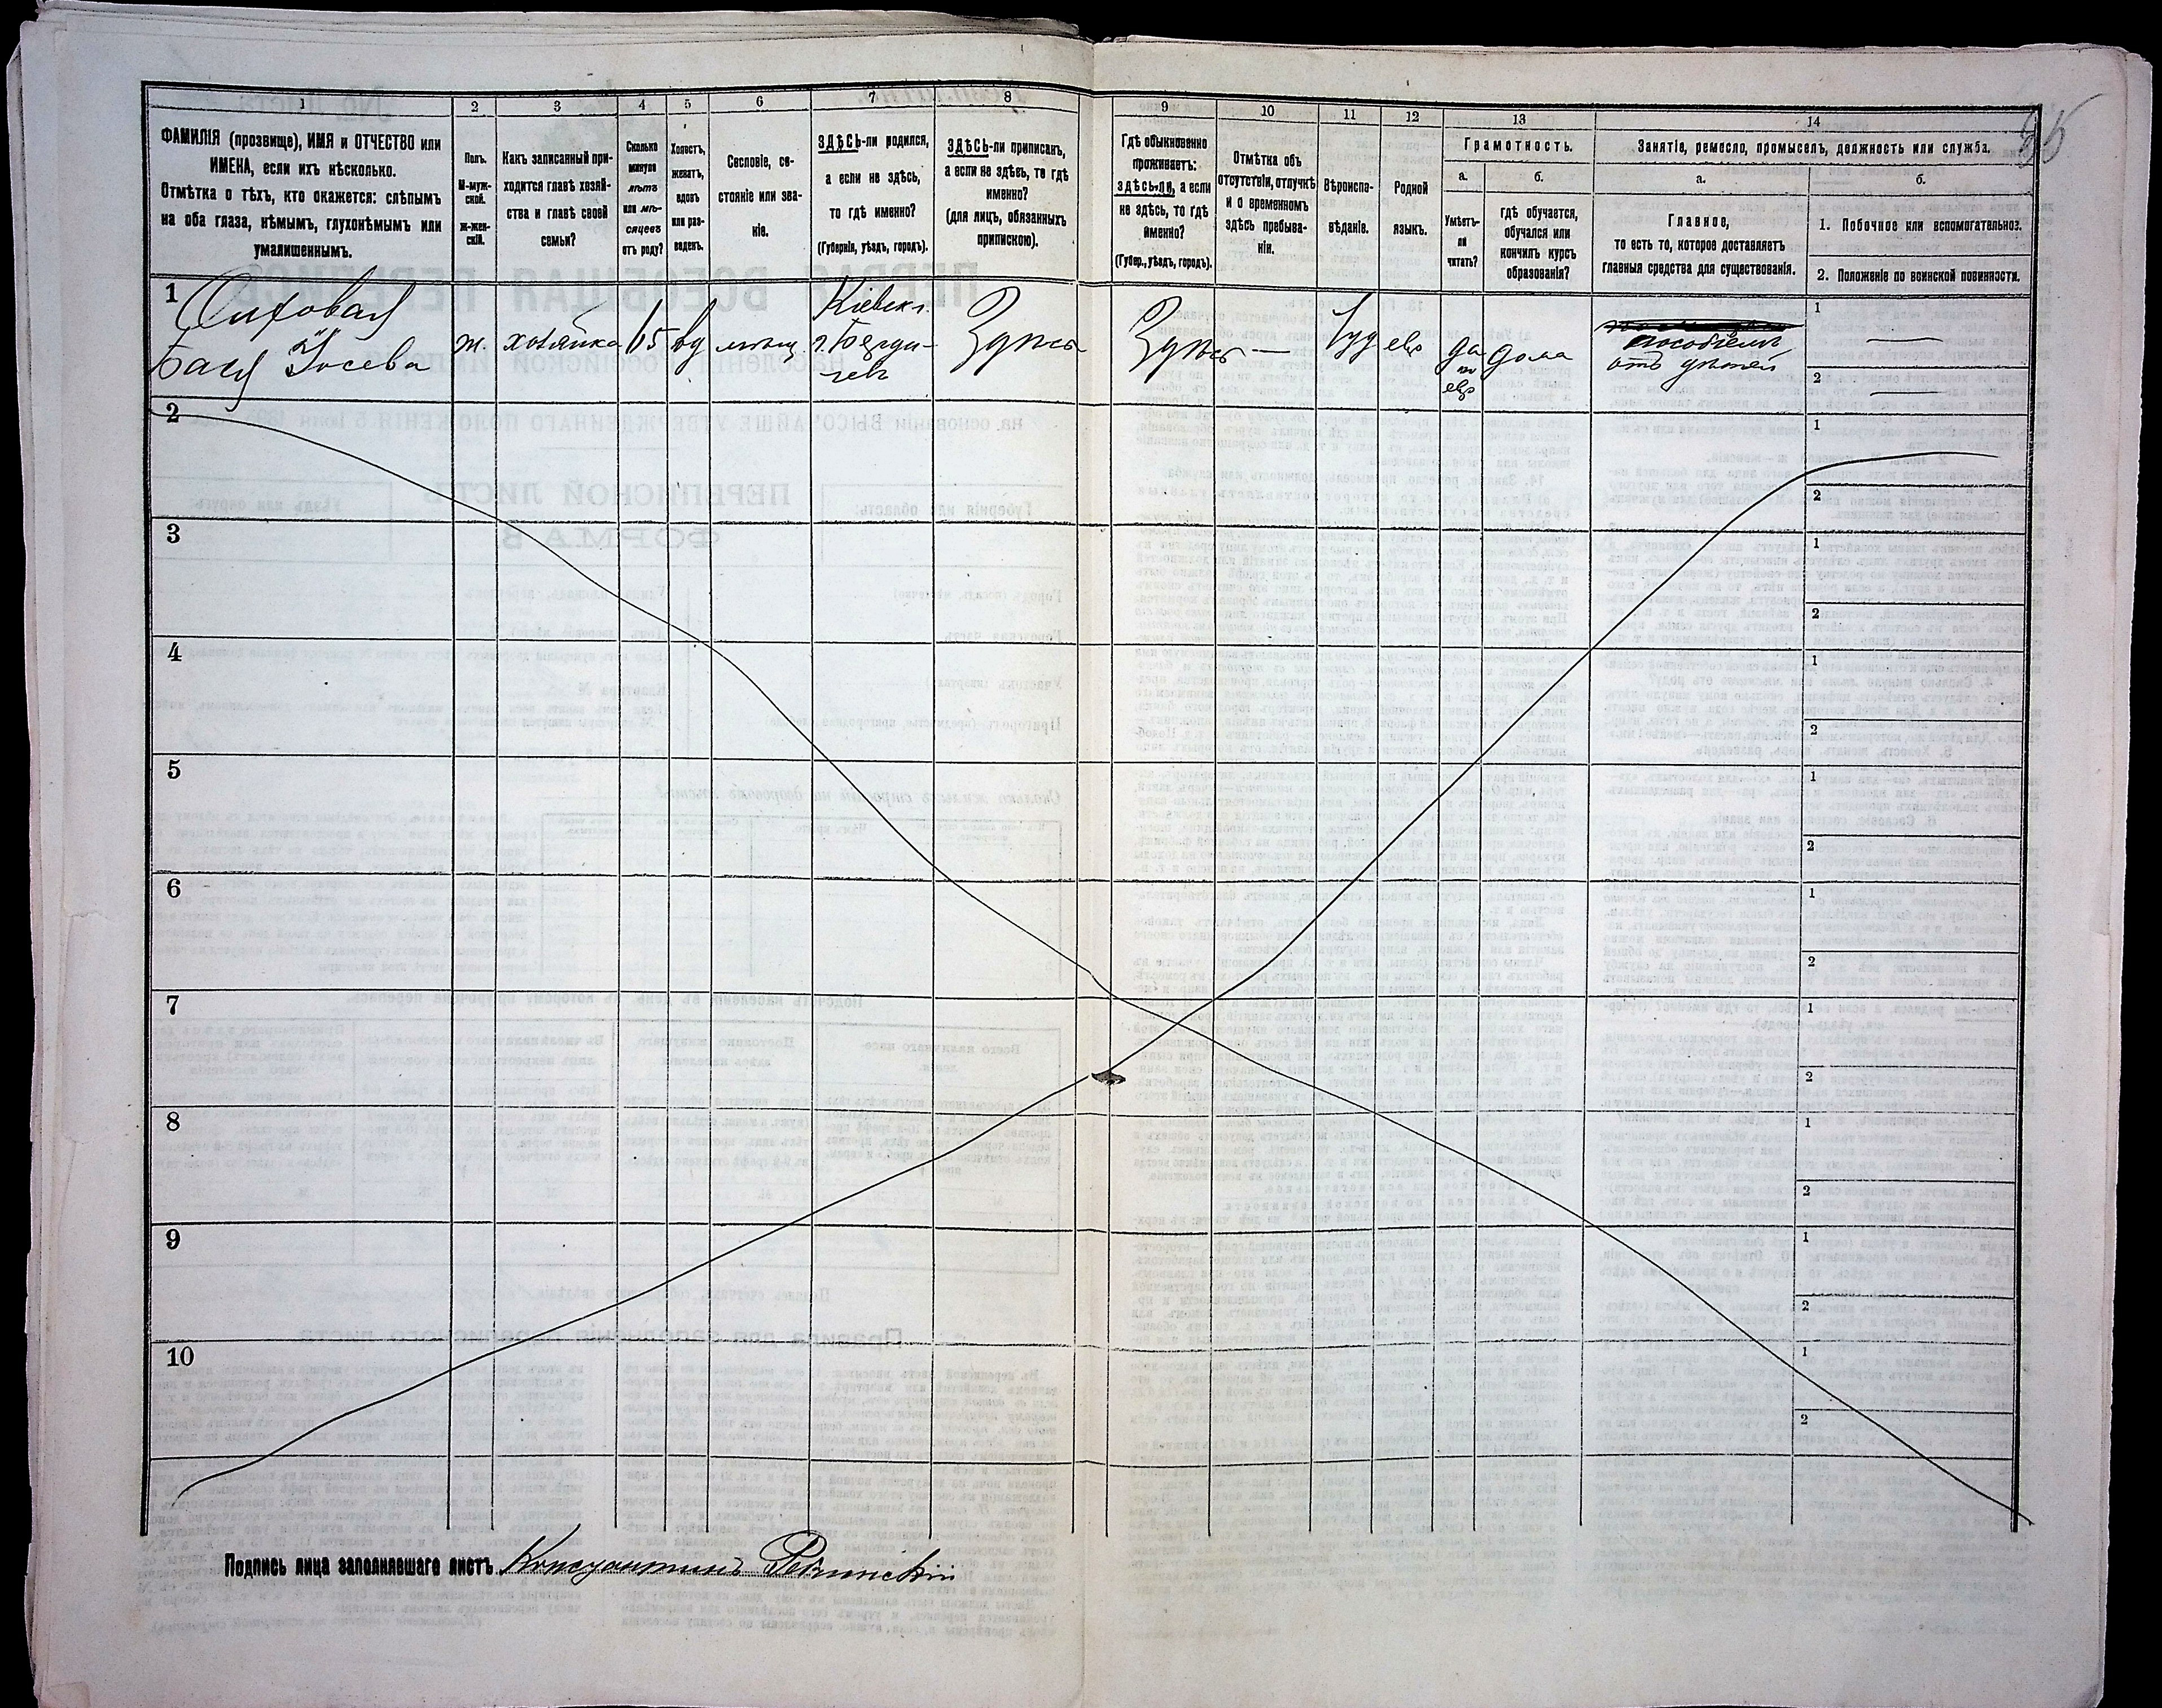 85
1
2
3
4
5
6
7
8
9
10
11
12
13
14
ФАМИЛІЯ (прозвище), ИМЯ и ОТЧЕСТВО или
ИМЕНА, если ихъ нѣсколько.
Отмѣтка о тѣхъ, кто окажется: слѣпымъ
на оба глаза, нѣмымъ, глухонѣмымъ или
умалишеннымъ.
Полъ.
М-муж-
ской.
ж-жен-
скій.
Какъ записанный при-
ходится главѣ хозяй-
ства и главѣ своей
семьи?
Сколько
минуло
лѣтъ
или мѣ-
сяцевъ
отъ роду?
Холостъ,
женатъ,
вдовъ
или раз-
веденъ.
Сословіе, со-
стояніе или зва-
ніе.
ЗДѢСЬ-ли родился,
а если не здѣсь,
то гдѣ именно?
(Губернія, уѣздъ, городъ).
ЗДѢСЬ-ли приписанъ,
а если не здѣсь, то гдѣ
именно?
(для лицъ, обязанныхъ
припискою).
Гдѣ обыкновенно
проживаетъ:
здѣсь-ли, а если
не здѣсь, то гдѣ
именно?
(Губер., уѣздъ, городъ).
Отмѣтка объ
отсутствіи, отлучкѣ
и о временномъ
здѣсь пребыва-
ніи.
Вѣроиспо-
вѣданіе.
Родной
языкъ.
Грамотность.
а.
Умѣетъ-
ли
читать?
б.
гдѣ обучается,
обучался или
кончилъ курсъ
образованія?
Занятіе, ремесло, промыселъ, должность или служба.
а.
Главное,
то есть то, которое доставляетъ
главныя средства для существованія.
б.
1. Побочное или вспомогательное.
2. Положеніе по воинской повинности.
1
Бася Іосева
ж.
хозяйка
65
вд
мѣщ
Кіевск г.
г. Берди-
чевъ
Здѣсь
Здѣсь
—
Іуд
евр
да
по
евр
дома
пособіемъ
отъ дѣтей
1
—
2
—
2
1
2
3
1
2
4
1
2
5
1
2
6
1
2
7
1
2
8
1
2
9
1
2
10
1
2
Подпись лица заполнявшаго листъ Константинъ